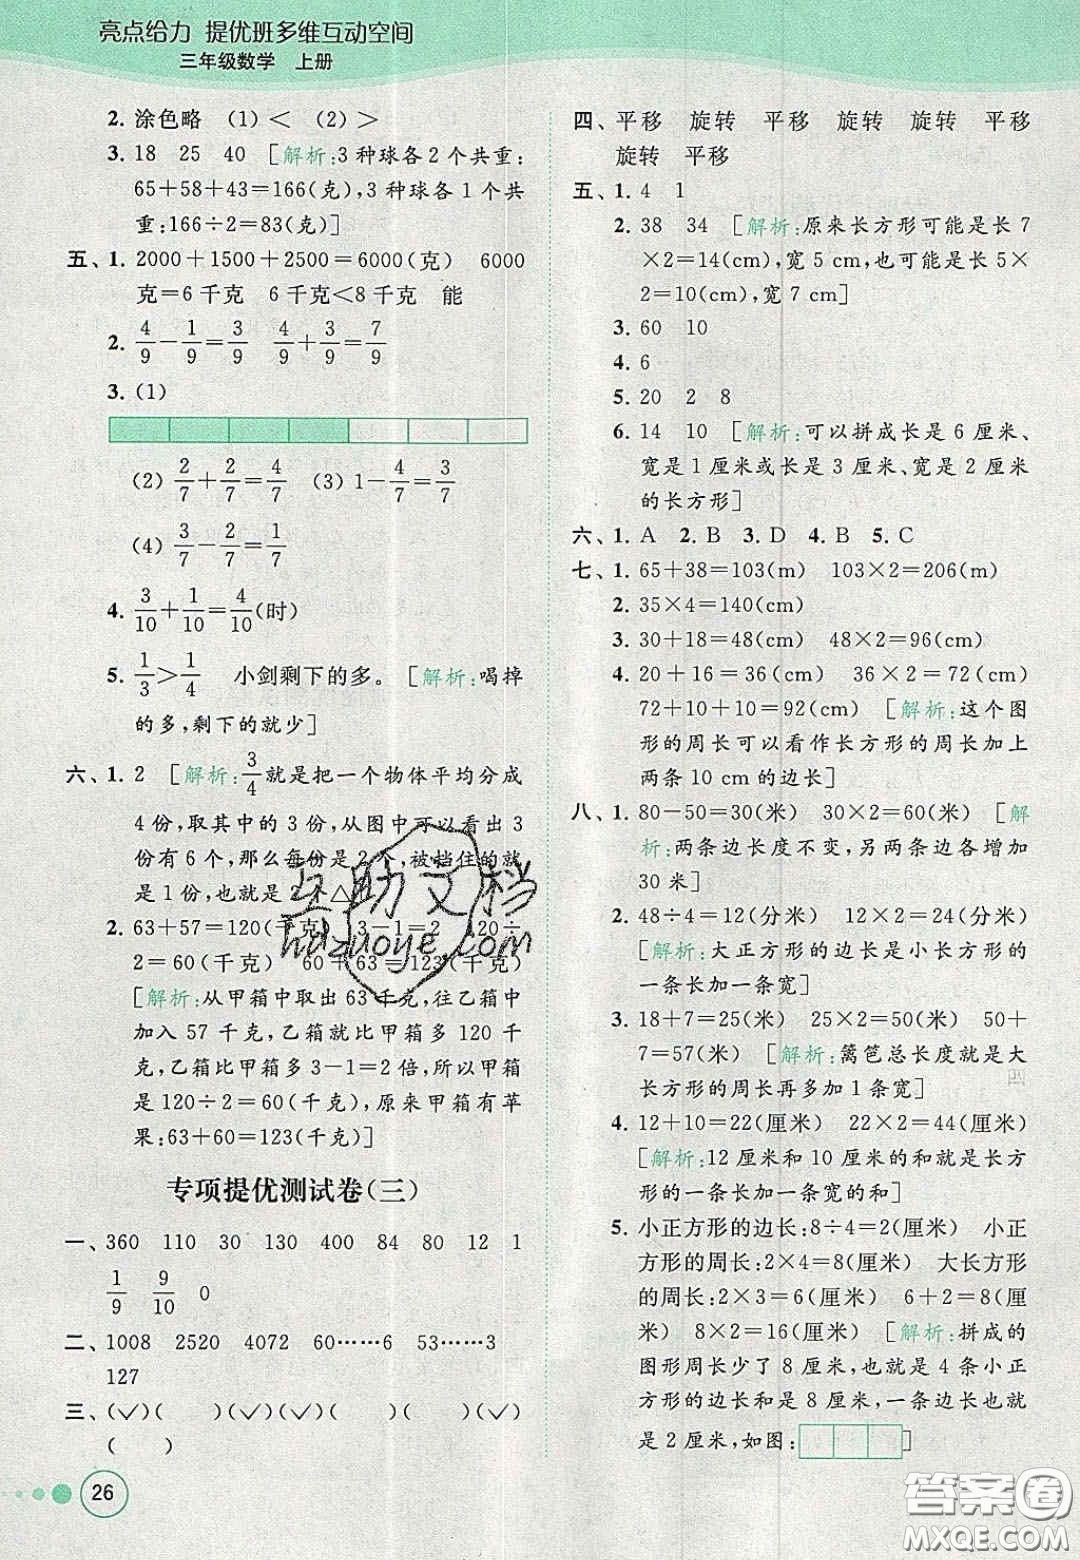 亮点给力 提优班多维互动空间
三年级数学 上册
2. 涂色略 (1)< (2)>
3. 18 25 40 [解析:3 种球各 2 个共重:
65+58+43=166(克),3 种球各 1 个共
重:166÷2=83(克)]
五、1. 2000+1500+2500=6000(克) 6000
克=6 千克 6 千克<8 千克 能
2. 4/9-1/9=3/9 4/9+3/9=7/9
3. (1)
(2) 2/7+2/7=4/7 (3) 1-4/7=3/7
(4) 3/7-2/7=1/7
4. 3/10+1/10=4/10(时)
5. 1/3>1/4 小剑剩下的多。 [解析:喝掉
的多,剩下的就少]
六、1. 2 [解析:3/4就是把一个物体平均分成
4 份,取其中的 3 份,从图中可以看出 3
份有 6 个,那么每份是 2 个,被挡住的就
是 1 份,也就是 2 个△]
2. 63+57=120(千克) 3-1=2 120÷
2=60(千克) 60+63=123(千克)
[解析:从甲箱中取出 63 千克,往乙箱中
加入 57 千克,乙箱就比甲箱多 120 千
克,乙箱比甲箱多 3-1=2 倍,所以甲箱
是 120÷2=60(千克),原来甲箱有苹
果:63+60=123(千克)]
专项提优测试卷(三)
一、360 110 30 130 400 84 80 12 1
1/9 9/10 0
二、1008 2520 4072 60……6 53……3
127
三、(✓)( )(✓)(✓)( )( )(✓)
( )
26
四、平移 旋转 平移 旋转 旋转 平移
旋转 平移
五、1. 4 1
2. 38 34 [解析:原来长方形可能是长 7
×2=14(cm),宽 5 cm,也可能是长 5×
2=10(cm),宽 7 cm]
3. 60 10
4. 6
5. 20 2 8
6. 14 10 [解析:可以拼成长是 6 厘米、
宽是 1 厘米或长是 3 厘米、宽是 2 厘米
的长方形]
六、1. A 2. B 3. D 4. B 5. C
七、1. 65+38=103(m) 103×2=206(m)
2. 35×4=140(cm)
3. 30+18=48(cm) 48×2=96(cm)
4. 20+16=36(cm) 36×2=72(cm)
72+10+10=92(cm) [解析:这个图
形的周长可以看作长方形的周长加上
两条 10 cm 的边长]
八、1. 80-50=30(米) 30×2=60(米) [解
析:两条边长度不变,另两条边各增加
30 米]
2. 48÷4=12(分米) 12×2=24(分米)
[解析:大正方形的边长是小长方形的
一条长加一条宽]
3. 18+7=25(米) 25×2=50(米) 50+
7=57(米) [解析:篱笆总长度就是大
长方形的周长再多加 1 条宽]
4. 12+10=22(厘米) 22×2=44(厘米)
[解析:12 厘米和 10 厘米都是长方
形的一条长加一条宽的和]
5. 小正方形的边长:8÷4=2(厘米) 小正
方形的周长:2×4=8(厘米) 大长方形
的周长:2×3=6(厘米) 6+2=8(厘
米) 8×2=16(厘米) [解析:拼成的
图形周长少了 8 厘米,也就是 4 条小正
方形的边长和是 8 厘米,一条边长就
是 2 厘米,如图: ]
互助文档
huzuoye.com
答案圈
MXQE.COM